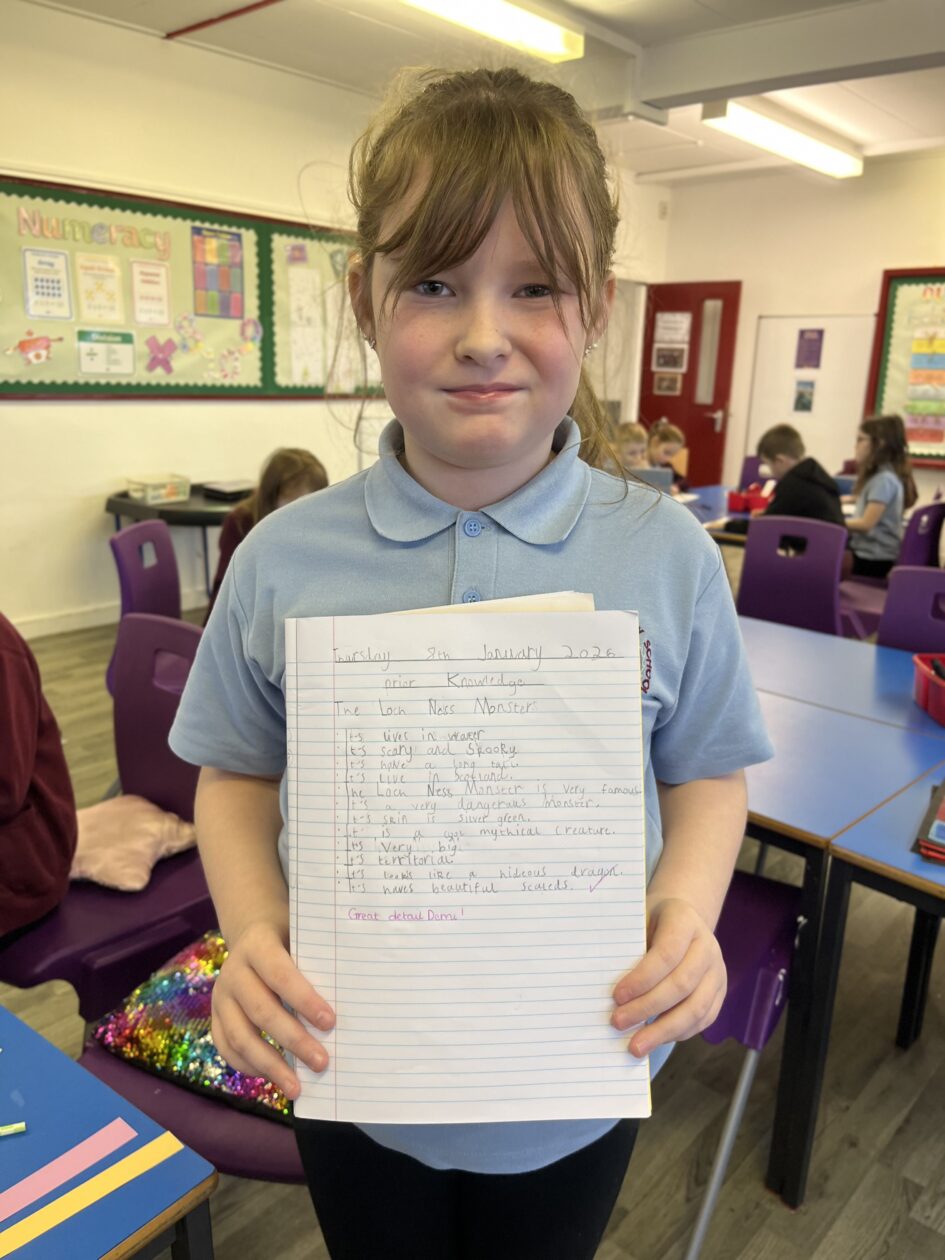 Numeracy
Array
Division
School
Thursday 8th January 2026
prior Knowledge
The Loch Ness Monster
It's lives in water
It's scary and spooky
It's have a long tail.
It's live in Scotland.
The Loch Ness Monster is very famous
It's a very dangerous monster.
It's skin is silver green.
it is a mythical creature.
It's very big.
It's territorial
It's looks like a hideous dragon.
It's haves beautiful scaleds.
Great detail Demi!